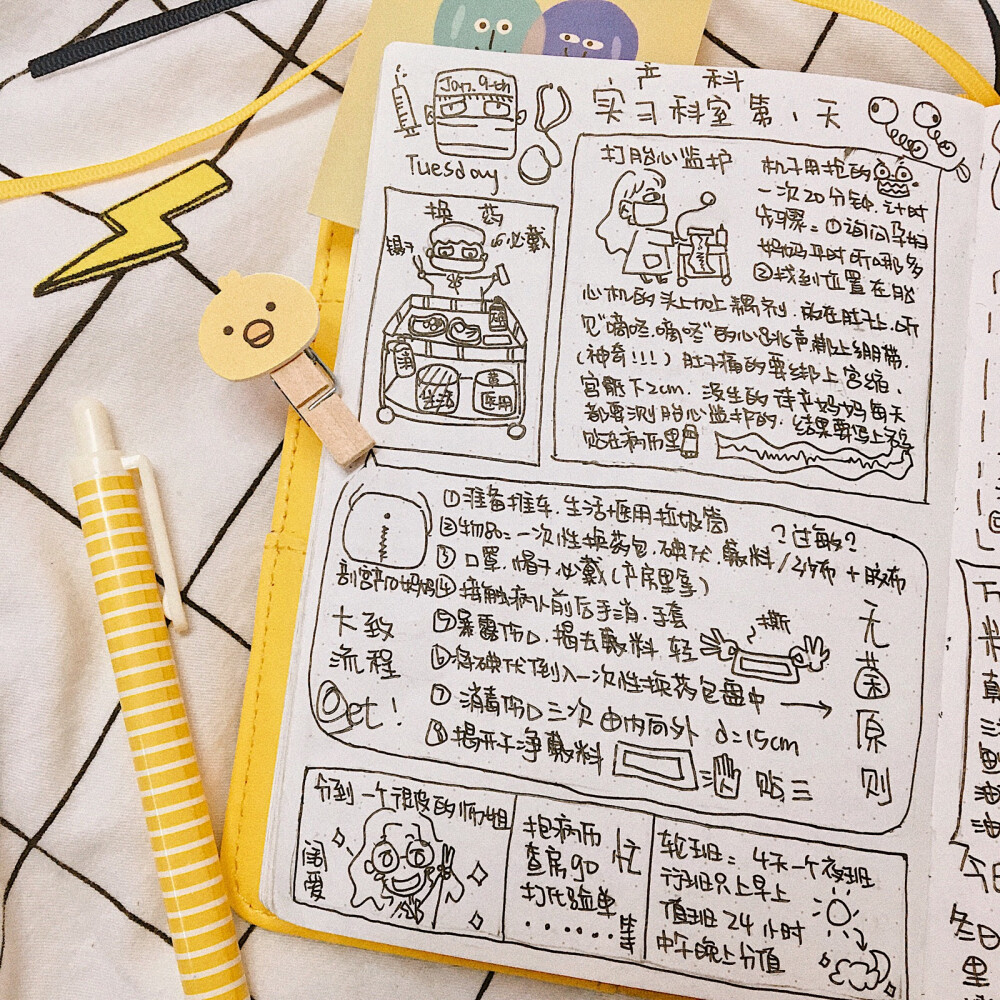 Jan. 9th
Tuesday
产科
实习科室第1天
换药
镊子
必戴
生活
医用
打胎心监护
机子用抢的
一次20分钟.计时
步骤:①询问孕妇
妈妈平时听哪多
②找到位置在胎
心机的头上加上耦合剂.放在肚子上.听
见"嘀咚.嘀咚"的心跳声.绑上绷带.
(神奇!!!)肚子痛的要绑上宫缩.
宫底下2cm.没生的待产妈妈每天
都要测胎心监护的.结果要写上
贴在病历里
剖宫产的妈妈
大致
流程
Get!
①准备推车.生活+医用垃圾筒
②物品:一次性换药包.碘伏.敷料/纱布+胶布
?过敏?
③口罩.帽子必戴(产房里拿)
④接触病人前后手消.手套
⑤暴露伤口.揭去敷料.轻
撕
⑥将碘伏倒入一次性换药包盘中→
⑦消毒伤口三次由内向外 d=15cm
⑧揭开干净敷料
贴三
无菌原则
分到一个很皮的师姐
闺爱
抱病历
查房go
打化验单
......等
忙
轮班:4天一个夜班
行班只上早上
值班24小时
中午晚上分值